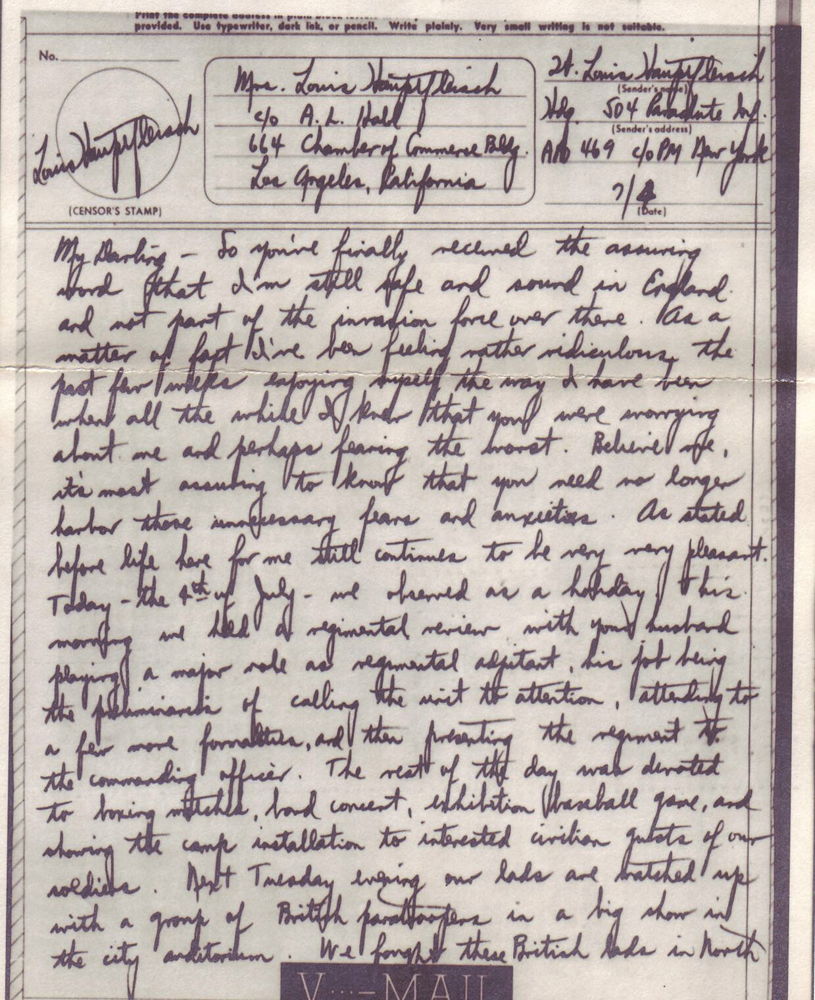 Print the complete address in plain block letters
provided. Use typewriter, dark ink, or pencil. Write plainly. Very small writing is not suitable.
No.
Louis Hauptfleisch
(CENSOR'S STAMP)
Mrs. Louis Hauptfleisch
c/o A. L. Hall
664 Chamber of Commerce Bldg.
Los Angeles, California
Lt. Louis Hauptfleisch
(Sender's name)
Hdq. 504 Parachute Inf.
(Sender's address)
APO 469 c/o PM New York
7/4
(Date)
My Darling - So you've finally received the assuring
word that I'm still safe and sound in England
and not part of the invasion force over there. As a
matter of fact I've been feeling rather ridiculous, the
past few weeks enjoying myself the way I have been
when all the while I knew that you were worrying
about me and perhaps fearing the worst. Believe me,
it's most assuring to know that you need no longer
harbor those unnecessary fears and anxieties. As stated
before life here for me still continues to be very very pleasant.
Today - the 4th of July - we observed as a holiday. This
morning we held a regimental review with your husband
playing a major role as regimental adjutant, his job being
the preliminaries of calling the unit to attention, attending to
a few more formalities, and then presenting the regiment to
the commanding officer. The rest of the day was devoted
to boxing matches, band concert, exhibition baseball game, and
showing the camp installation to interested civilian guests of our
soldiers. Next Tuesday evening our lads are matched up
with a group of British paratroopers in a big show in
the city auditorium. We fought these British lads in North
V···-MAIL